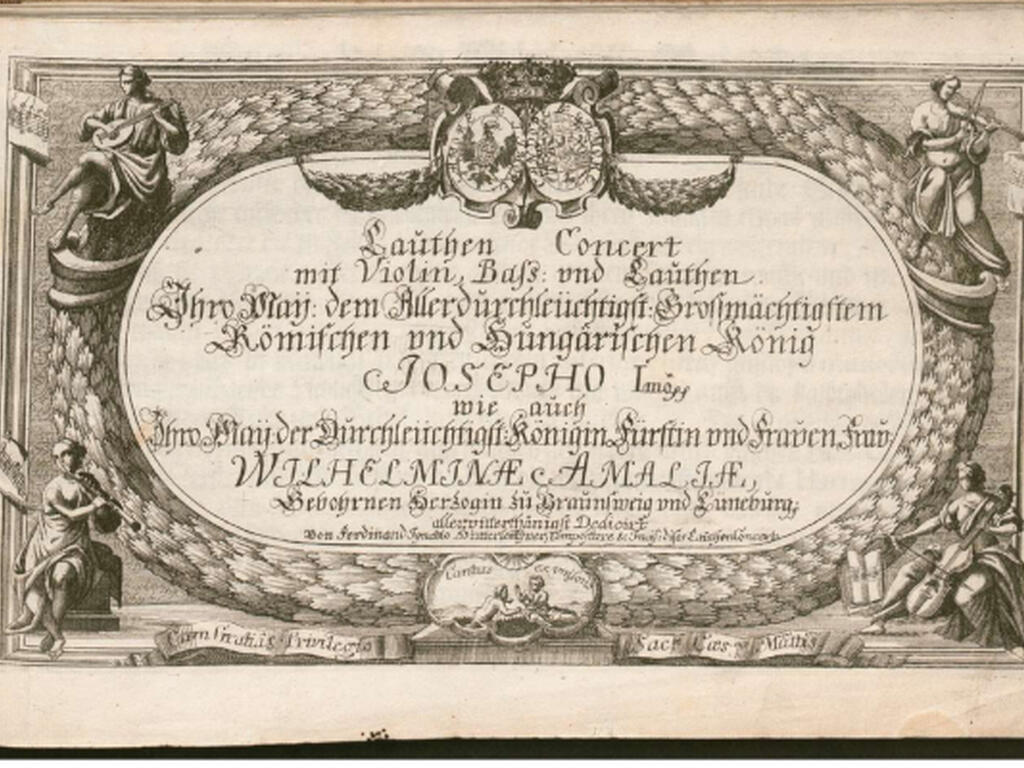 Lauthen Concert
mit Violin, Bass: vnd Lauthen.
Ihro May: dem Allerdurchleüchtigst: Grossmächtigstem
Römischen vnd Hungarischen König
JOSEPHO I.mo
wie auch
Ihro May: der Durchleüchtigst: Königin Fürstin vnd Frauen, Frau
WILHELMINÆ AMALIÆ,
Gebohrnen Hertzogin zu Braunsweig vnd Lüneburg,
allervnterthänigst Dedicirt
Von Ferdinand Ignatio
Cantus ex unisono
Cum Gratia & Privilegio
Sac: Cæs: Mattis